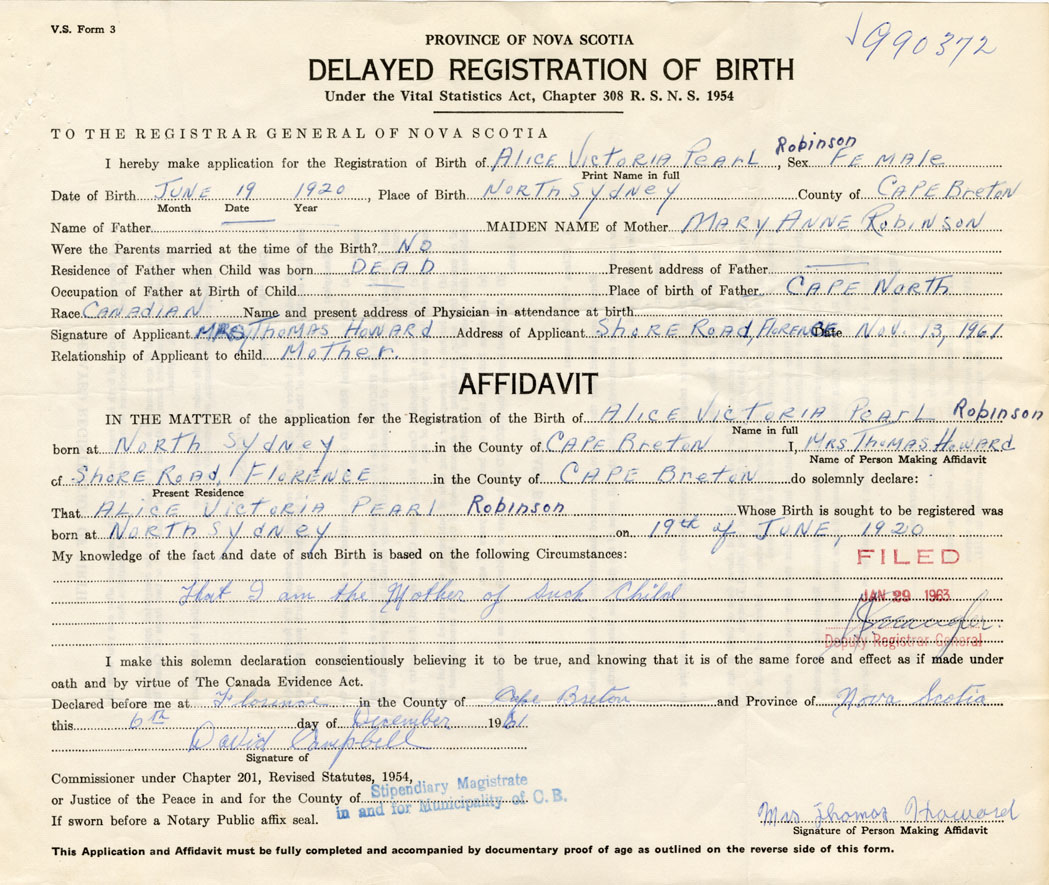 V.S. Form 3
990372
PROVINCE OF NOVA SCOTIA
DELAYED REGISTRATION OF BIRTH
Under the Vital Statistics Act, Chapter 308 R. S. N. S. 1954
TO THE REGISTRAR GENERAL OF NOVA SCOTIA
I hereby make application for the Registration of Birth of ALICE VICTORIA PEARL Robinson, Sex FEMALE
Print Name in full
Date of Birth JUNE 19 1920, Place of Birth NORTH SYDNEY County of CAPE BRETON
Month Date Year
Name of Father MAIDEN NAME of Mother MARY ANNE ROBINSON
Were the Parents married at the time of the Birth? NO
Residence of Father when Child was born DEAD Present address of Father
Occupation of Father at Birth of Child Place of birth of Father CAPE NORTH
Race CANADIAN Name and present address of Physician in attendance at birth
Signature of Applicant MRS THOMAS HOWARD Address of Applicant SHORE ROAD, FLORENCE Date NOV. 13, 1961
Relationship of Applicant to child MOTHER.
AFFIDAVIT
IN THE MATTER of the application for the Registration of the Birth of ALICE VICTORIA PEARL Robinson
Name in full
born at NORTH SYDNEY in the County of CAPE BRETON I, MRS THOMAS HOWARD
Name of Person Making Affidavit
of SHORE ROAD, FLORENCE in the County of CAPE BRETON do solemnly declare:
Present Residence
That ALICE VICTORIA PEARL Robinson Whose Birth is sought to be registered was
born at NORTH SYDNEY on 19th of JUNE, 1920
My knowledge of the fact and date of such Birth is based on the following Circumstances:
FILED
That I am the Mother of Such Child
JAN 29 1963
Deputy Registrar General
I make this solemn declaration conscientiously believing it to be true, and knowing that it is of the same force and effect as if made under
oath and by virtue of The Canada Evidence Act.
Declared before me at Florence in the County of Cape Breton and Province of Nova Scotia
this 6th day of December 1961
David Campbell
Signature of
Commissioner under Chapter 201, Revised Statutes, 1954,
or Justice of the Peace in and for the County of Stipendiary Magistrate
in and for Municipality of C.B.
If sworn before a Notary Public affix seal.
Mrs Thomas Howard
Signature of Person Making Affidavit
This Application and Affidavit must be fully completed and accompanied by documentary proof of age as outlined on the reverse side of this form.